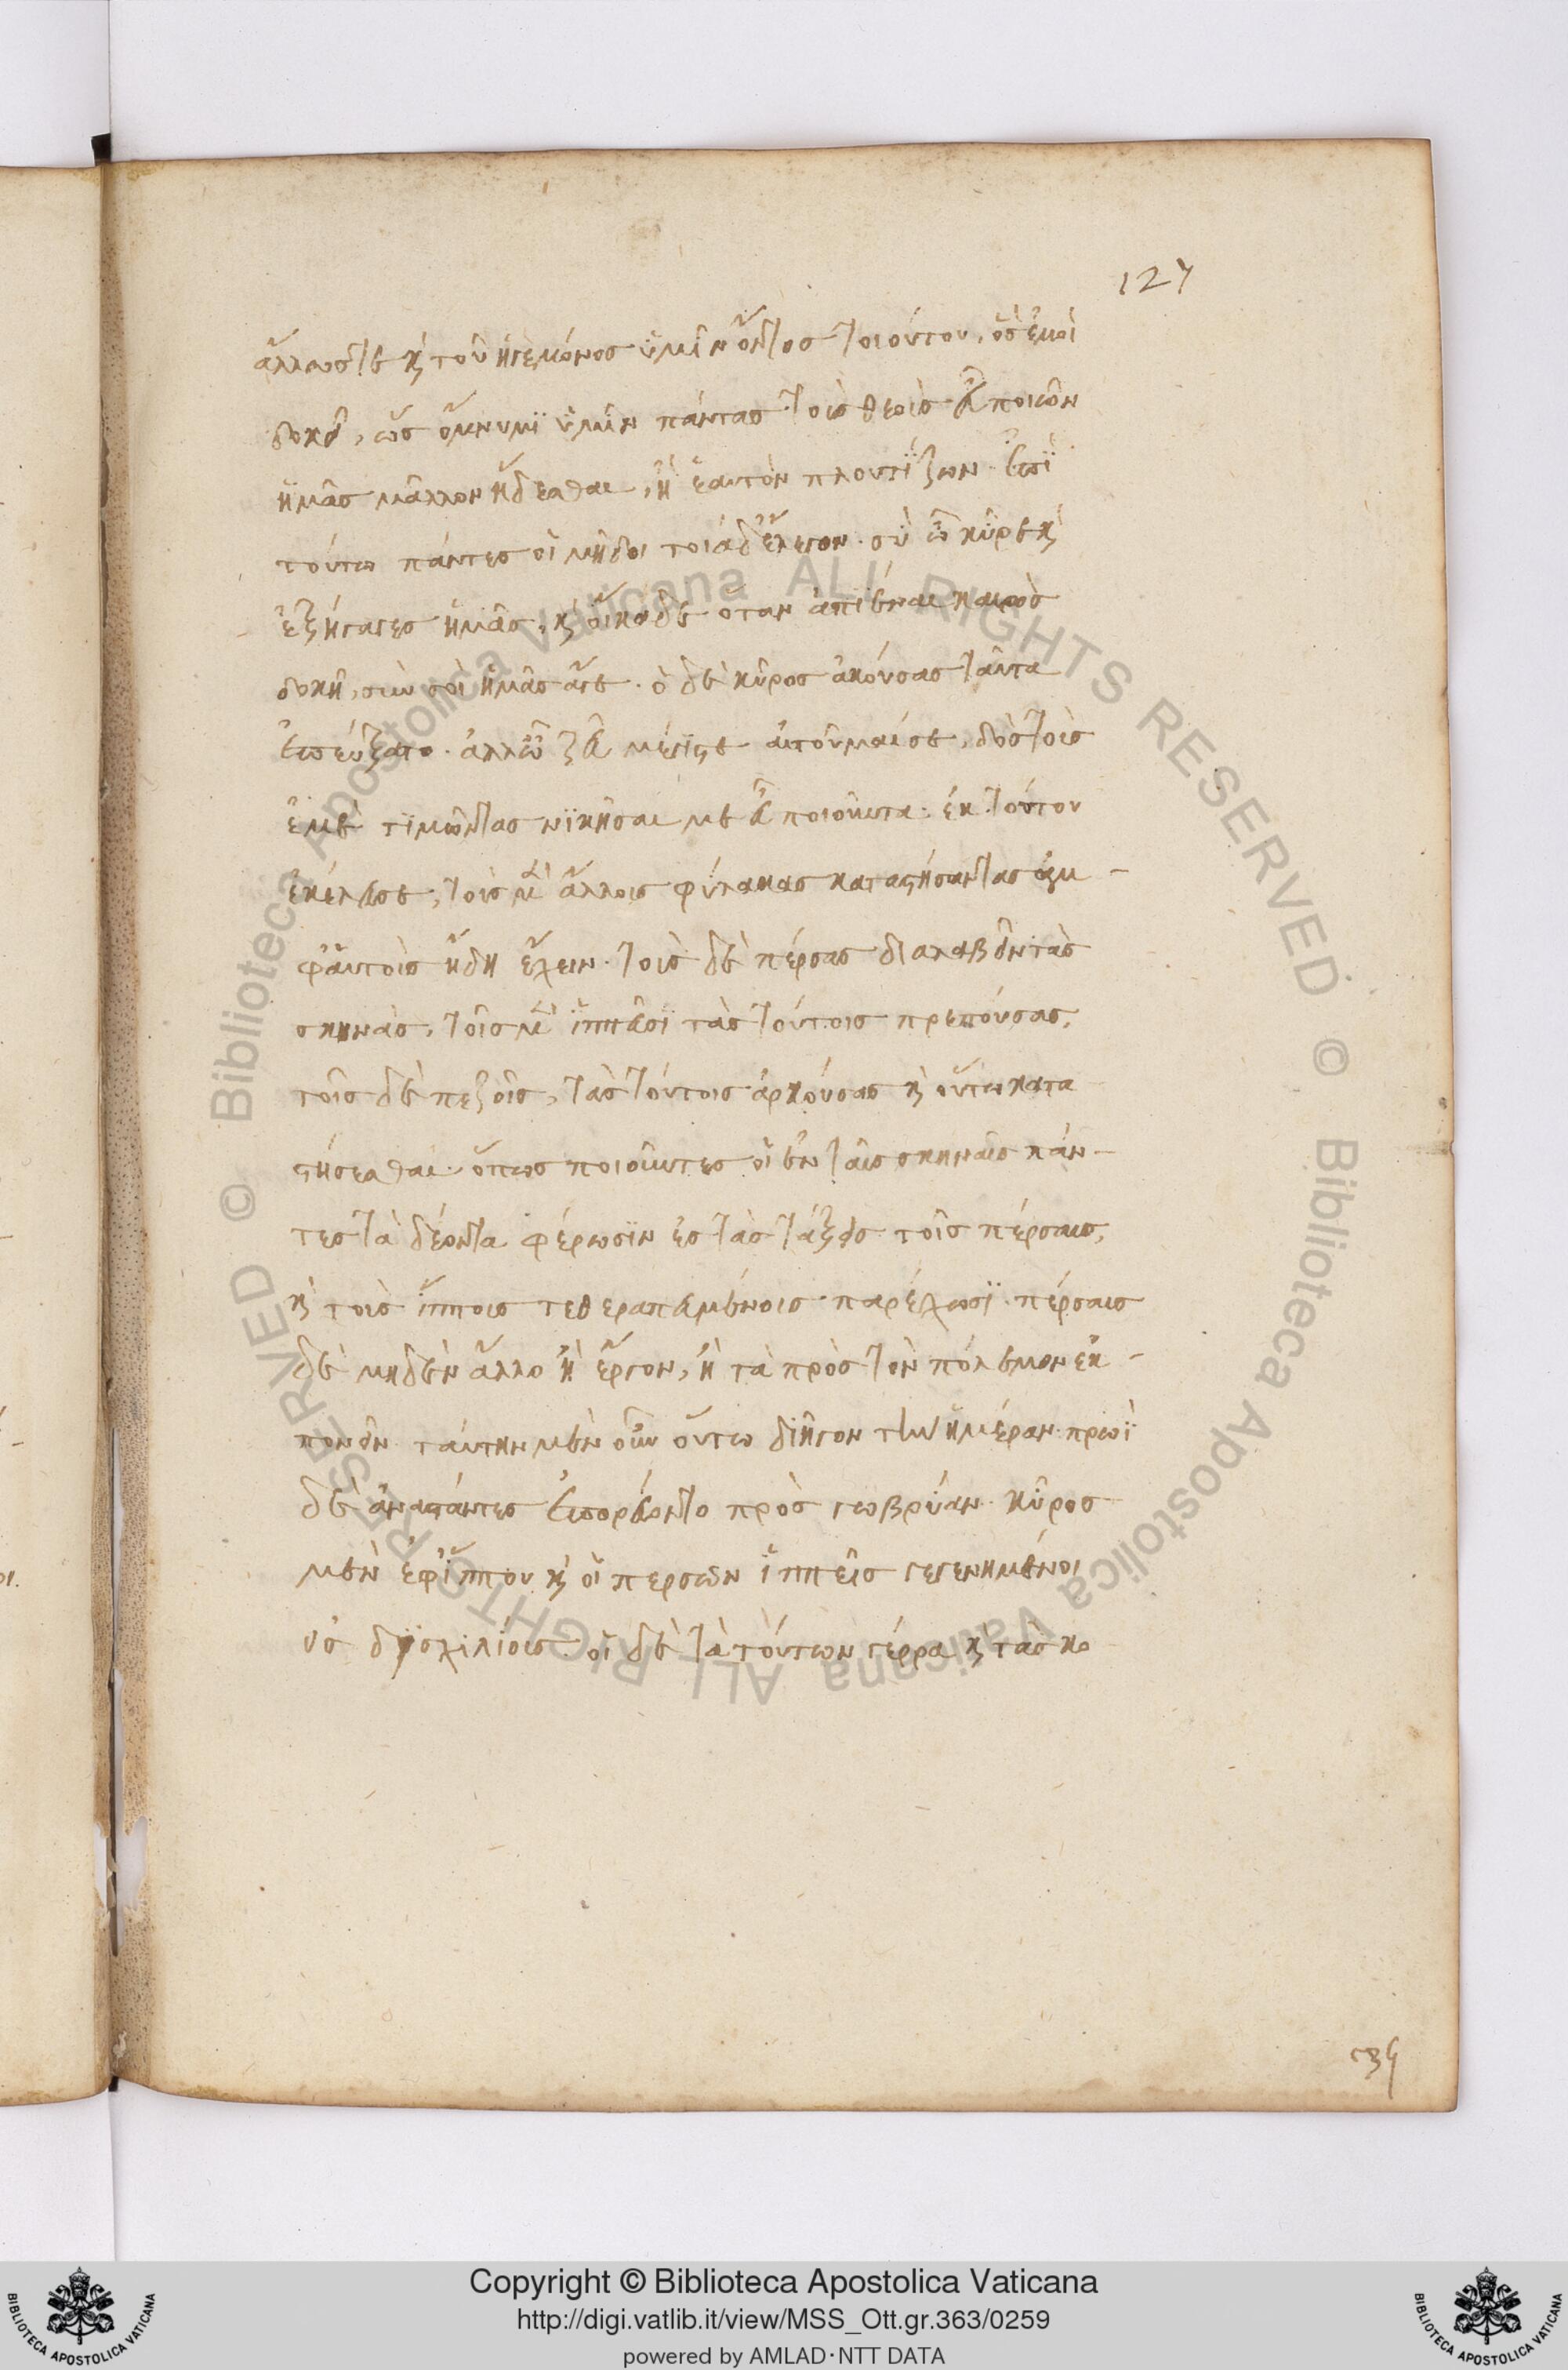 127
ἄλλωστε κ̀ τοῦ ἡγεμόνος ὑμῖν ὄντος τοιούτου, ὃς ἐμοὶ
δοκεῖ, ὡς ὄμνυμϊ ὑμῖν πάντας τοὺς θεοὺς εὖ ποιῶν
ἡμᾶς μᾶλλον ἥδεσθαι, ἢ ἑαυτὸν πλουτΐζων. ἐπῒ
τούτω πάντες οἱ μῆδοι τοιάδ' ἔλεγον. σὺ ὦ κῦρε κ̀
ἐξήγαγες ἡμᾶς, κ̀ οἴκαδε ὅταν ἀπϊέναι καιρὸς
δοκῆ, σὺν σοὶ ἡμᾶς ἄγε. ὁ δὲ κῦρος ἀκούσας ταῦτα
ἐπεύξατο. ἀλλ' ὦ ζεῦ μέγϊστε αἰτοῦμαί σε, δὸς τοὺς
ἐμὲ τϊμῶντας νϊκῆσαι με εὖ ποιοῦντα. ἐκ τούτου
ἐκέλευσε, τοὺς μὲν ἄλλοις φύλακας καταστήσαντας ἀμ-
φ' αὑτοὺς ἤδη ἔχειν. τοὺς δὲ πέρσας διαλαβεῖν τὰς
σκηνὰς, τοῖς μὲν ἱππεῦσϊ τὰς τούτοις πρεπούσας,
τοῖς δὲ πεζοῖς, τὰς τούτοις ἀρκούσας κ̀ οὕτω κατα
στήσεσθαι. ὅπως ποιοῦντες οἱ ἐν ταῖς σκηναῖς πάν-
τες τὰ δέοντα φέρωσϊν ἐς τὰς τάξεις τοῖς πέρσαις,
κ̀ τοὺς ἵππους τεθεραπευμένους παρέχωσϊ. πέρσαις
δὲ μηδὲν ἄλλο ἢ ἔργον, ἢ τὰ πρὸς τὸν πόλεμον ἐκ-
πονεῖν. ταύτην μὲν οὖν οὕτω διῆγον τὴν ἡμέραν. πρωῒ
δὲ ἀναστάντες ἐπορεύοντο πρὸς γωβρύαν. κῦρος
μὲν ἐφ' ἵππου κ̀ οἱ περσῶν ἱππεῖς γεγενημένοι
ὡς δϊσχιλίους. οἱ δὲ τὰ τούτων γέρρα κ̀ τὰς κο
© Biblioteca Apostolica Vaticana ALL RIGHTS RESERVED © Biblioteca Apostolica Vaticana ALL RIGHTS RESERVED
Copyright © Biblioteca Apostolica Vaticana
http://digi.vatlib.it/view/MSS_Ott.gr.363/0259
powered by AMLAD·NTT DATA
BIBLIOTECA APOSTOLICA VATICANA
BIBLIOTECA APOSTOLICA VATICANA